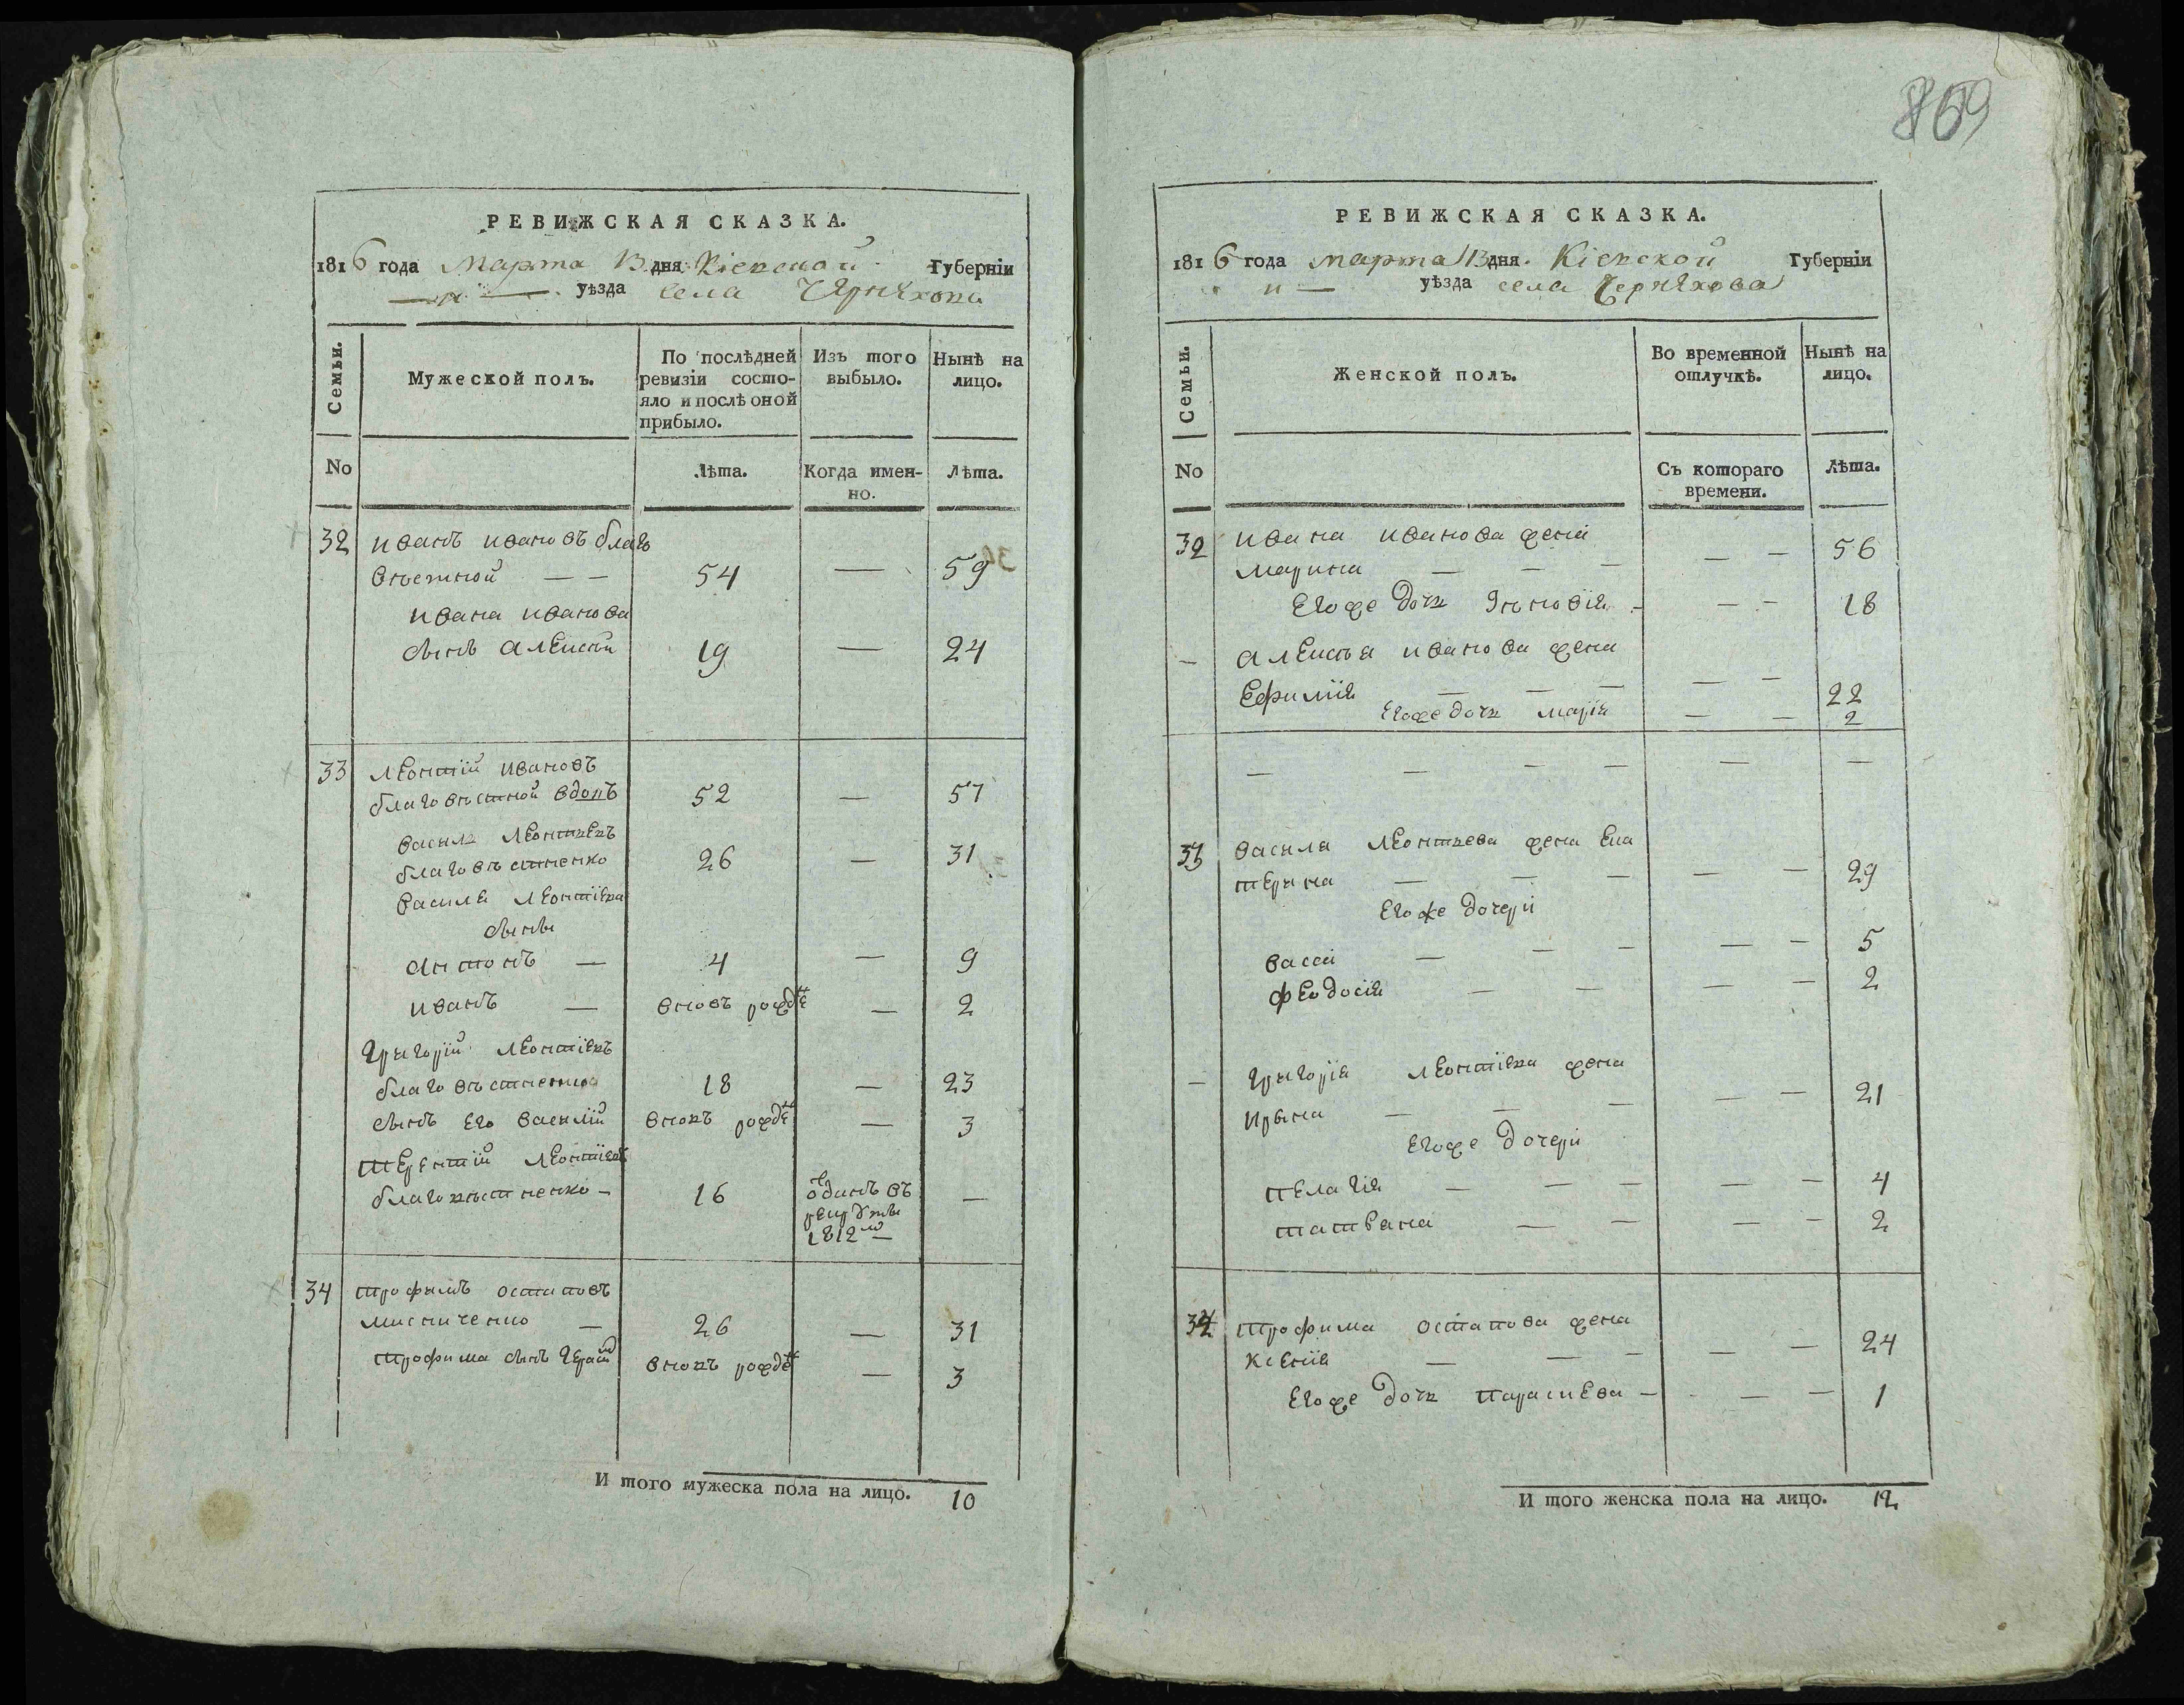 РЕВИЖСКАЯ СКАЗКА.
1816 года Марта 13 дня Кіевской Губерніи
—„— уѣзда села Чернѣхова
Семьи.
Мужеской полъ.
По послѣдней ревизіи состояло и послѣ оной прибыло.
Изъ того выбыло.
Нынѣ на лицо.
No
Лѣта.
Когда именно.
Лѣта.
32 иванъ ивановъ благо
вѣстной — — 54 — 59
ивана иванова
сынъ алексѣй 19 — 24
33 леонтій ивановъ
благовѣстной вдовъ 52 — 57
василь леонтьевъ
благовѣстненко 26 — 31
василя леонтіева
сыны
антонъ — 4 — 9
иванъ — вновъ рожде — 2
григорій леонтіевъ
благовѣстненко 18 — 23
сынъ его василій вновъ рожде — 3
терентій леонтіевъ
благовѣстненко — 16 одинъ въ —
рекруты
1812го —
34 трофимъ остаповъ
мисниченко — 26 — 31
трофима сынъ вновъ рожде — 3
И того мужеска пола на лицо. 10
859
РЕВИЖСКАЯ СКАЗКА.
1816 года марта 13 дня. Кіевской Губерніи
„ — уѣзда села Чернѣхова
Семьи.
Женской полъ.
Во временной отлучкѣ.
Нынѣ на лицо.
No
Съ котораго времени.
Лѣта.
32 ивана иванова жена
марина — — — — — 56
его же дочь — — — 18
— алексѣя иванова жена
ефимія — — — — — 22
его же дочь марія — — 2
— — — — — —
33 василя леонтьева жена ека
терина — — — — — 29
его же дочери
васса — — — — — 5
феодосія — — — — 2
— григорія леонтіева жена
ирына — — — — — 21
его же дочери
пелагія — — — — — 4
татіана — — — — 2
34 трофима остапова жена
ксенія — — — — — 24
его же дочь параскева — — — 1
И того женска пола на лицо. 12